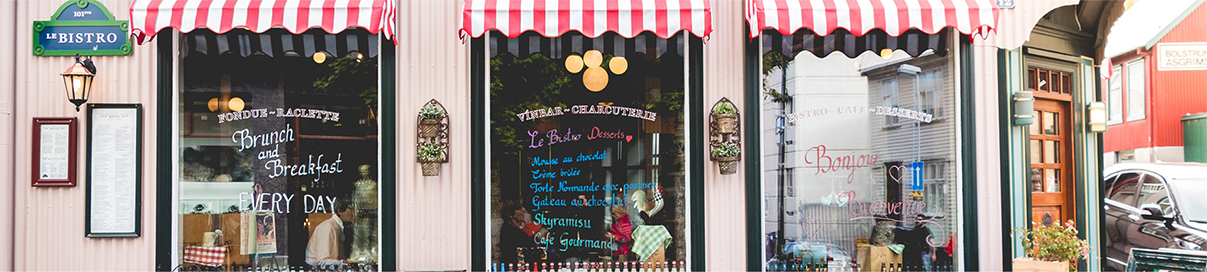 101ER
LE BISTRO
FONDUE ~ RACLETTE
Brunch
and
Breakfast
EVERY DAY
VÍNBAR ~ CHARCUTERIE
Le Bistro Desserts
Mousse au chocolat
Crème brûlée
Torte Normande aux pommes
Gateau au chocolat
Skyramisu
Café Gourmand
BISTRO ~ CAFE ~ DESSERTS
Bonjour
Bienvenue
BOLSTRUN
ASGRÍMS